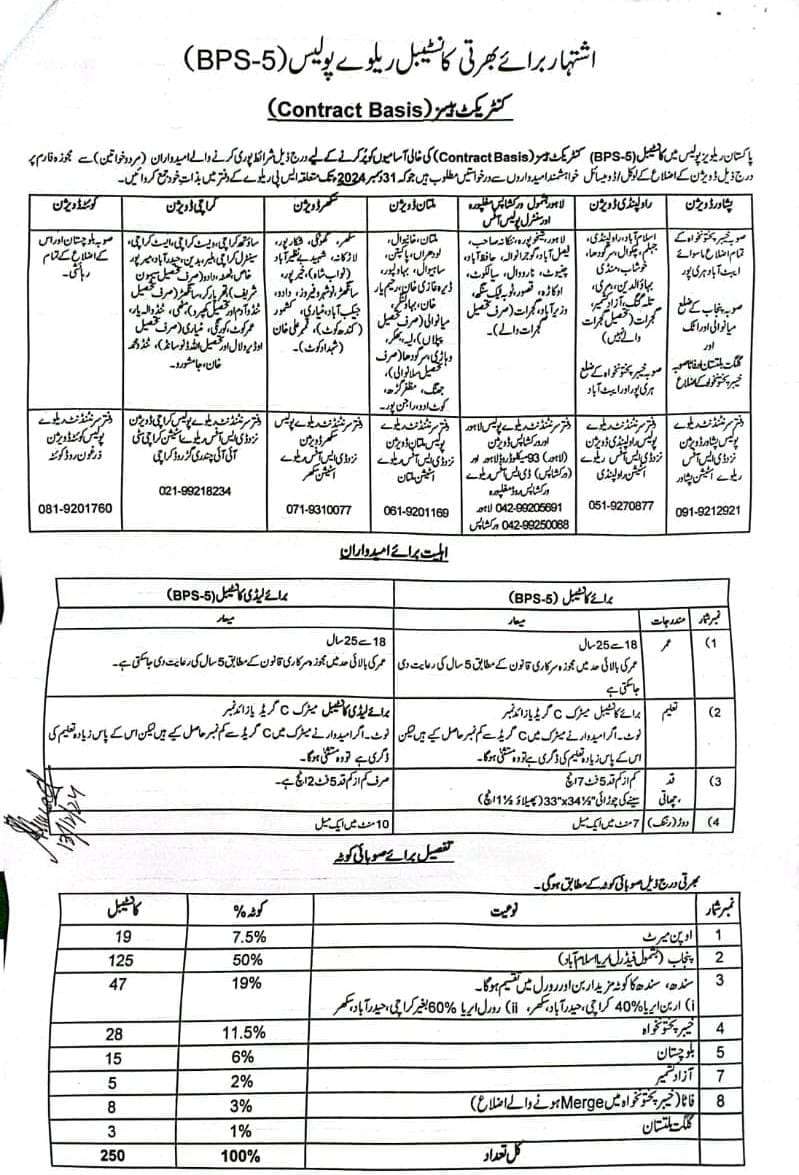 اشتہار برائے بھرتی کانسٹیبل ریلوے پولیس (BPS-5)
کنٹریکٹ بیسز (Contract Basis)
پاکستان ریلویز پولیس میں کانسٹیبل (BPS-5) کنٹریکٹ بیسز (Contract Basis) کی خالی آسامیوں کو پُر کرنے کے لیے درج ذیل شرائط پوری کرنے والے امیدواران (مرد و خواتین) سے مجوزہ فارم پر
درج ذیل ڈویژن کے اضلاع کے لوکل/ڈومیسائل خواہشمند امیدواروں سے درخواستیں مطلوب ہیں جو کہ 31 دسمبر 2024 تک متعلقہ ایس پی ریلوے کے دفتر میں بذات خود جمع کروائیں۔
پشاور ڈویژن
صوبہ خیبر پختونخواہ کے
تمام اضلاع ماسوائے
ایبٹ آباد ہری پور
صوبہ پنجاب کے ضلع
میانوالی اور اٹک
اور
گلگت بلتستان اور فاٹا صوبہ
خیبر پختونخواہ کے اضلاع
دفتر سپرنٹنڈنٹ ریلوے
پولیس پشاور ڈویژن
نزد ڈی ایس آفس
ریلوے اسٹیشن پشاور
091-9212921
راولپنڈی ڈویژن
اسلام آباد، راولپنڈی،
جہلم، چکوال، سرگودھا،
خوشاب، منڈی
بہاؤالدین، مری،
تلہ گنگ، آزاد کشمیر،
گجرات (تحصیل گجرات
والے نہیں)
صوبہ خیبر پختونخواہ کے ضلع
ہری پور اور ایبٹ آباد
دفتر سپرنٹنڈنٹ ریلوے
پولیس راولپنڈی ڈویژن
نزد ڈی ایس آفس ریلوے
اسٹیشن راولپنڈی
051-9270877
لاہور بشمول ورکشاپس مغلپورہ
اور سنٹرل پولیس آفس
لاہور، شیخوپورہ، ننکانہ صاحب،
فیصل آباد، گوجرانوالہ، حافظ آباد،
چنیوٹ، نارووال، سیالکوٹ،
اوکاڑہ، قصور، ٹوبہ ٹیک سنگھ،
وزیر آباد، گجرات (صرف تحصیل
گجرات والے)۔
دفتر سپرنٹنڈنٹ ریلوے پولیس لاہور
اور ورکشاپس ڈویژن
(لاہور) 93-میکلوڈ روڈ لاہور اور
(ورکشاپس) ڈی ایس آفس
ورکشاپس روڈ مغلپورہ
042-99205691 لاہور
042-99250068 ورکشاپس
ملتان ڈویژن
ملتان، خانیوال،
لودھراں، پاکپتن،
ساہیوال، بہاولپور،
ڈیرہ غازی خان، رحیم یار
خان، بہاولنگر،
میانوالی (صرف تحصیل
پپلاں)، لیہ، بھکر،
وہاڑی، سرگودھا (صرف
تحصیل سلانوالی)،
جھنگ، مظفر گڑھ،
کوٹ ادو، راجن پور۔
دفتر سپرنٹنڈنٹ ریلوے
پولیس ملتان ڈویژن
نزد ڈی ایس آفس ریلوے
اسٹیشن ملتان
061-9201169
سکھر ڈویژن
سکھر، گھوٹکی، شکارپور،
لاڑکانہ، شہید بے نظیر آباد
(نواب شاہ)، خیر پور،
سانگھڑ، نوشہرو فیروز، دادو،
جیکب آباد، مٹیاری، کشمور
(کندھ کوٹ)، قمبر علی خان
(شہداد کوٹ)۔
دفتر سپرنٹنڈنٹ ریلوے پولیس
سکھر ڈویژن
نزد ڈی ایس آفس ریلوے
اسٹیشن سکھر
071-9310077
کراچی ڈویژن
ساؤتھ کراچی، ویسٹ کراچی، ایسٹ کراچی،
سینٹرل کراچی، ملیر، بدین، حیدر آباد، میرپور
خاص، ٹھٹھہ، دادو، (صرف تحصیل سیہون
شریف)، تھرپارکر، سانگھڑ (صرف تحصیل
ٹنڈو آدم اور تحصیل کھپرو)، مٹھی، ٹنڈو الہ یار،
عمر کوٹ، کورنگی، مٹیاری (صرف تحصیل
اوڈیرو لال اور تحصیل اللہ ڈنو سانڈ)، ٹنڈو محمد
خان، جامشورو۔
دفتر سپرنٹنڈنٹ ریلوے پولیس کراچی ڈویژن
نزد ڈی ایس آفس ریلوے اسٹیشن کراچی سٹی
آئی آئی چندریگر روڈ کراچی
021-99218234
کوئٹہ ڈویژن
صوبہ بلوچستان اور اس
کے اضلاع کے تمام
رہائشی۔
دفتر سپرنٹنڈنٹ ریلوے
پولیس کوئٹہ ڈویژن
زرغون روڈ کوئٹہ
081-9201760
اہلیت برائے امیدواران
برائے کانسٹیبل (BPS-5) برائے لیڈی کانسٹیبل (BPS-5)
نمبر شمار مندرجات معیار معیار
1) عمر 18 سے 25 سال
عمر کی بالائی حد میں مجوزہ سرکاری قانون کے مطابق 5 سال کی رعایت دی
جا سکتی ہے
18 سے 25 سال
عمر کی بالائی حد میں مجوزہ سرکاری قانون کے مطابق 5 سال کی رعایت دی جا سکتی ہے۔
2) تعلیم برائے کانسٹیبل میٹرک C گریڈ یا زائد نمبر
نوٹ۔ اگر امیدوار نے میٹرک میں C گریڈ سے کم نمبر حاصل کیے ہیں لیکن
اس کے پاس زیادہ تعلیم کی ڈگری ہے تو وہ مستثنیٰ ہوگا۔
برائے لیڈی کانسٹیبل میٹرک C گریڈ یا زائد نمبر
نوٹ۔ اگر امیدوار نے میٹرک میں C گریڈ سے کم نمبر حاصل کیے ہیں لیکن اس کے پاس زیادہ تعلیم کی
ڈگری ہے تو وہ مستثنیٰ ہوگا۔
3) قد کم از کم قد 5 فٹ 7 انچ صرف کم از کم قد 5 فٹ 2 انچ ہے۔
چھاتی سینے کی چوڑائی "33"x34½ (پھیلاؤ 1½ انچ)
4) دوڑ (رننگ) 7 منٹ میں ایک میل 10 منٹ میں ایک میل
13/12/24
تفصیل برائے صوبائی کوٹہ
بھرتی درج ذیل صوبائی کوٹہ کے مطابق ہوگی۔
نمبر شمار نوعیت کوٹہ % کانسٹیبل
1 اوپن میرٹ 7.5% 19
2 پنجاب (بشمول فیڈرل ایریا اسلام آباد) 50% 125
3 سندھ، سندھ کا کوٹہ مزید اربن اور رورل میں تقسیم ہوگا۔ 19% 47
i) اربن ایریا 40% کراچی، حیدر آباد، سکھر، ii) رورل ایریا 60% بغیر کراچی، حیدر آباد، سکھر
4 خیبر پختونخواہ 11.5% 28
5 بلوچستان 6% 15
7 آزاد کشمیر 2% 5
8 فاٹا (خیبر پختونخواہ میں Merge ہونے والے اضلاع) 3% 8
گلگت بلتستان 1% 3
کل تعداد 100% 250